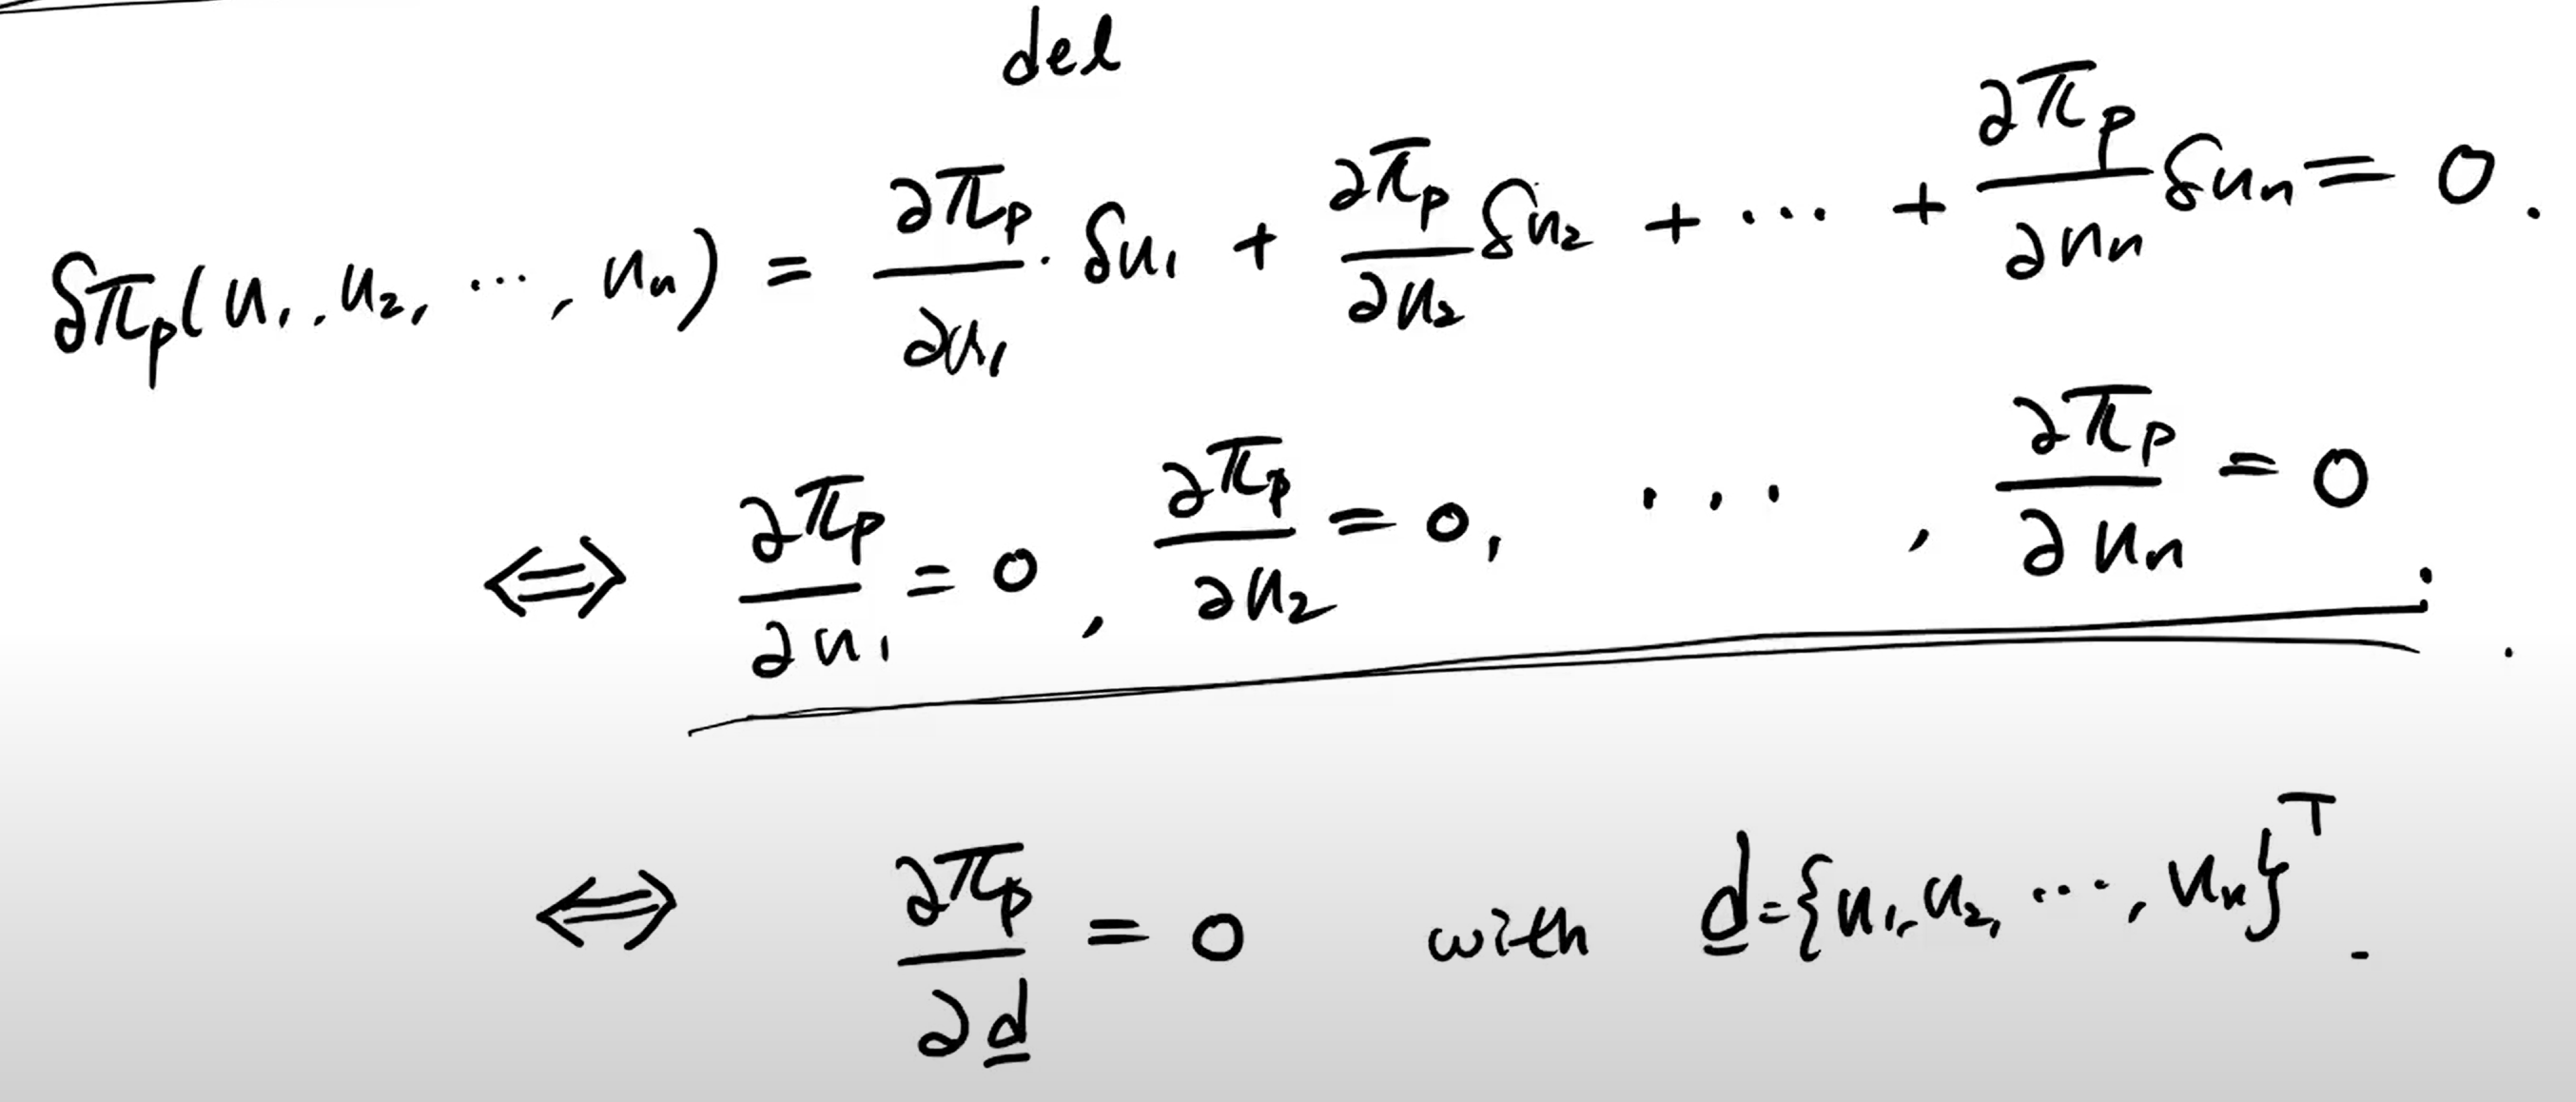 del
δπₚ(u₁, u₂, ⋯, uₙ) = ∂πₚ/∂u₁ · δu₁ + ∂πₚ/∂u₂ δu₂ + ⋯ + ∂πₚ/∂uₙ δuₙ = 0.
⇔ ∂πₚ/∂u₁ = 0, ∂πₚ/∂u₂ = 0, ⋯, ∂πₚ/∂uₙ = 0.
⇔ ∂πₚ/∂d̲ = 0 with d̲ = {u₁, u₂, ⋯, uₙ}ᵀ.